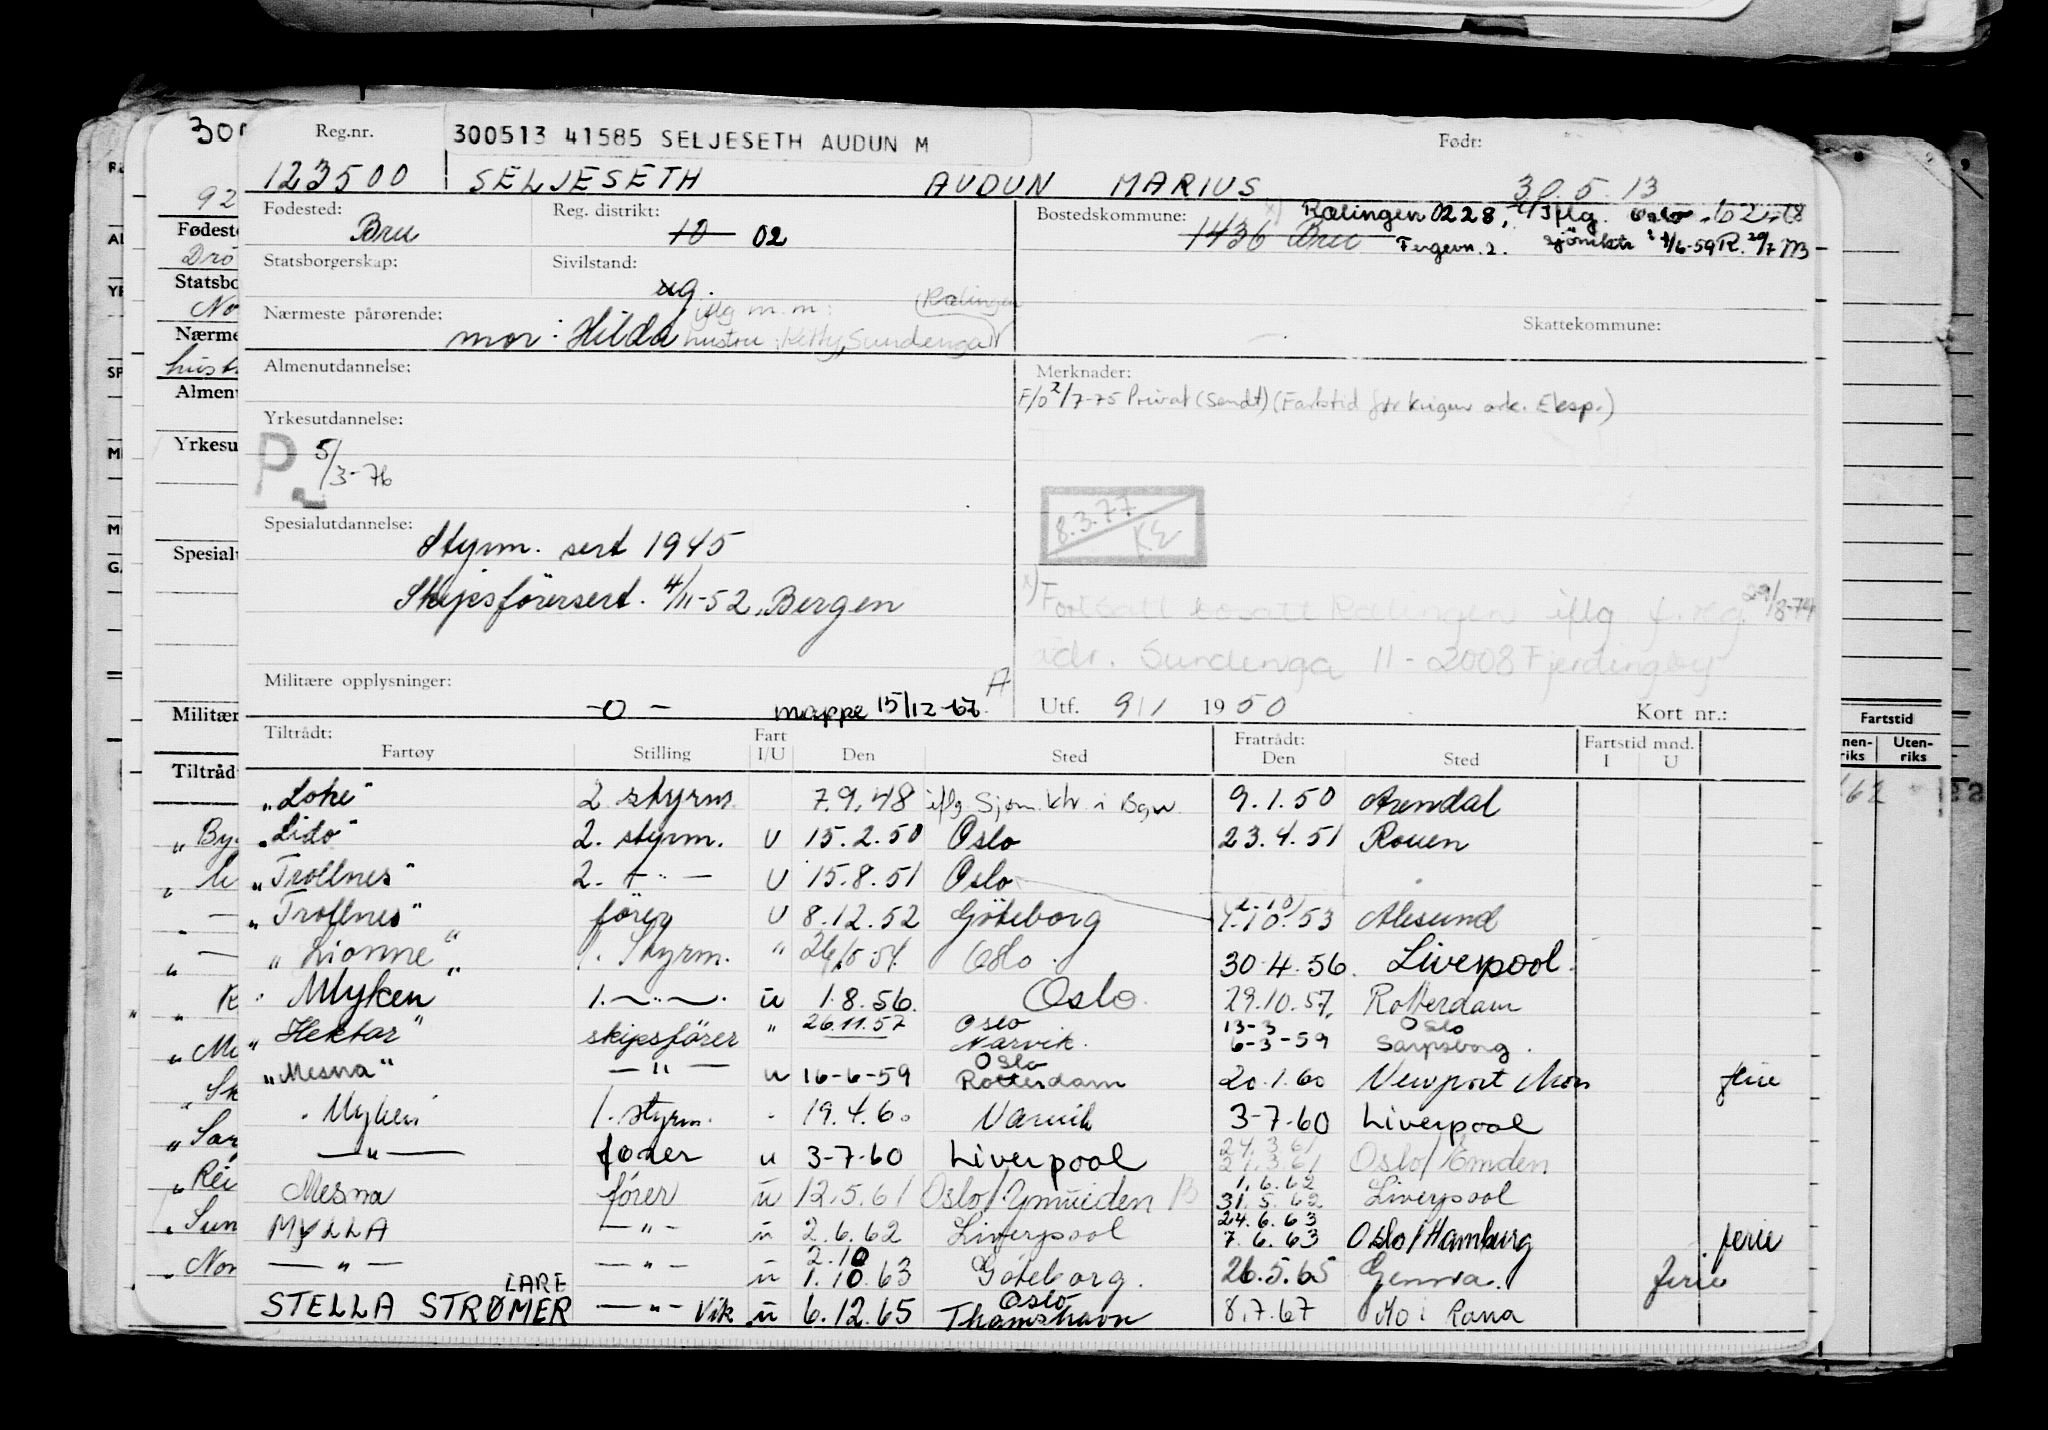 Reg.nr.
300513 41585 SELJESETH AUDUN M
Født:
123500 SELJESETH AUDUN MARIUS 30.5.13
Fødested: Bru
Reg. distrikt: 10 02
Bostedskommune: 1436 Bru
Rælingen 0228, iflg. Oslo
Fergevn. 2. sjömktr
Statsborgerskap:
Sivilstand: ug.
Nærmeste pårørende: mor: Hilda
iflg m.m: (Rælingen
hustru: Ketty, Sundenga
Skattekommune:
Almenutdannelse:
Merknader:
F/o 2/7-75 Privat (Sendt) (Fartstid før krigen ark. Eksp.)
Yrkesutdannelse:
P 5/3-76
8.3.77
Spesialutdannelse: Styrm. sert 1945
Skipsförersert. 4/11-52, Bergen
x) Fortsatt bosatt Rælingen iflg f.reg. 29/8-74
adr. Sundenga 11 - 2008 Fjerdingby
Militære opplysninger: -0- mappe 15/12-67 A
Utf. 9/1 1950
Kort nr.:
Tiltrådt:
Fartøy Stilling Fart I/U Den Sted
Fratrådt:
Den Sted Fartstid mnd. I U
"Loke" 2 styrm. 7.9.48 iflg Sjøm.ktr. i Bgn. 9.1.50 Arendal
"Lido" 2. styrm. U 15.2.50 Oslo 23.4.51 Rouen
"Trollnes" 2. -"- U 15.8.51 Oslo
"Trollnes" förer U 8.12.52 Göteborg 1.10.53 Alesund
"Lionne" 1. Styrm. " 26/5 54. Oslo. 30.4.56. Liverpool.
"Myken" 1. -"- u 1.8.56. Oslo. 29.10.57. Rotterdam
"Hektor" skipsförer " 26.11.57 Oslo Narvik. 13-3 6-3-59 Oslo Sarpsborg.
"Mesna" -"- u 16-6-59 Oslo Rotterdam 20.1.60 Newport Mon ferie
"Myken" 1. styrm. " 19.4.60 Narvik 3-7-60 Liverpool
-"- fører u 3-7-60 Liverpool 24.3.61 21.3.61 Oslo/Emden
Mesna fører u 12.5.61 Oslo/Ymuiden 1.6.62 31.5.62 Liverpool
MYLLA -"- u 2.6.62 Liverpool 24.6.63 7.6.63 Oslo/Hamburg ferie
-"- -"- u 2.10 1.10.63 Göteborg. 26.5.65 Genova. ferie
STELLA STRØMER LARE -"- Vik u 6.12.65 Oslo Thamshavn 8.7.67 Mo i Rana
Fartstid
Uten-
riks